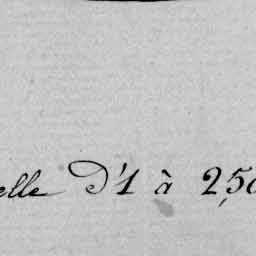 elle D'1 à 250